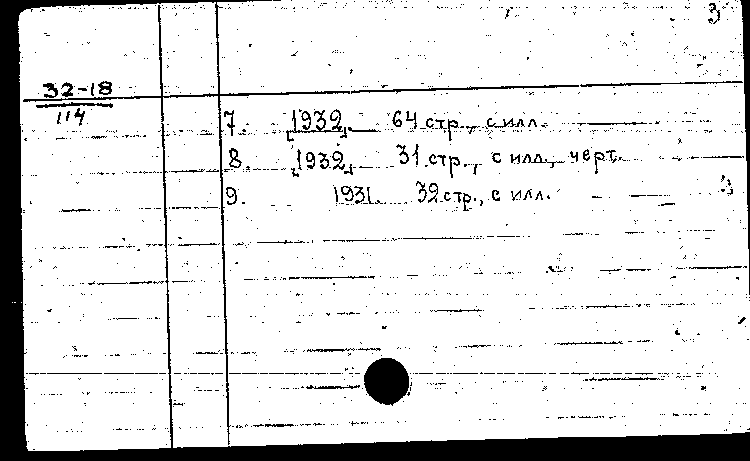 3
32-18
114
7. [1932]. 64 стр., с илл.
8. [1932] 31 стр., с илл., черт.
9. 1931. 32 стр., с илл.